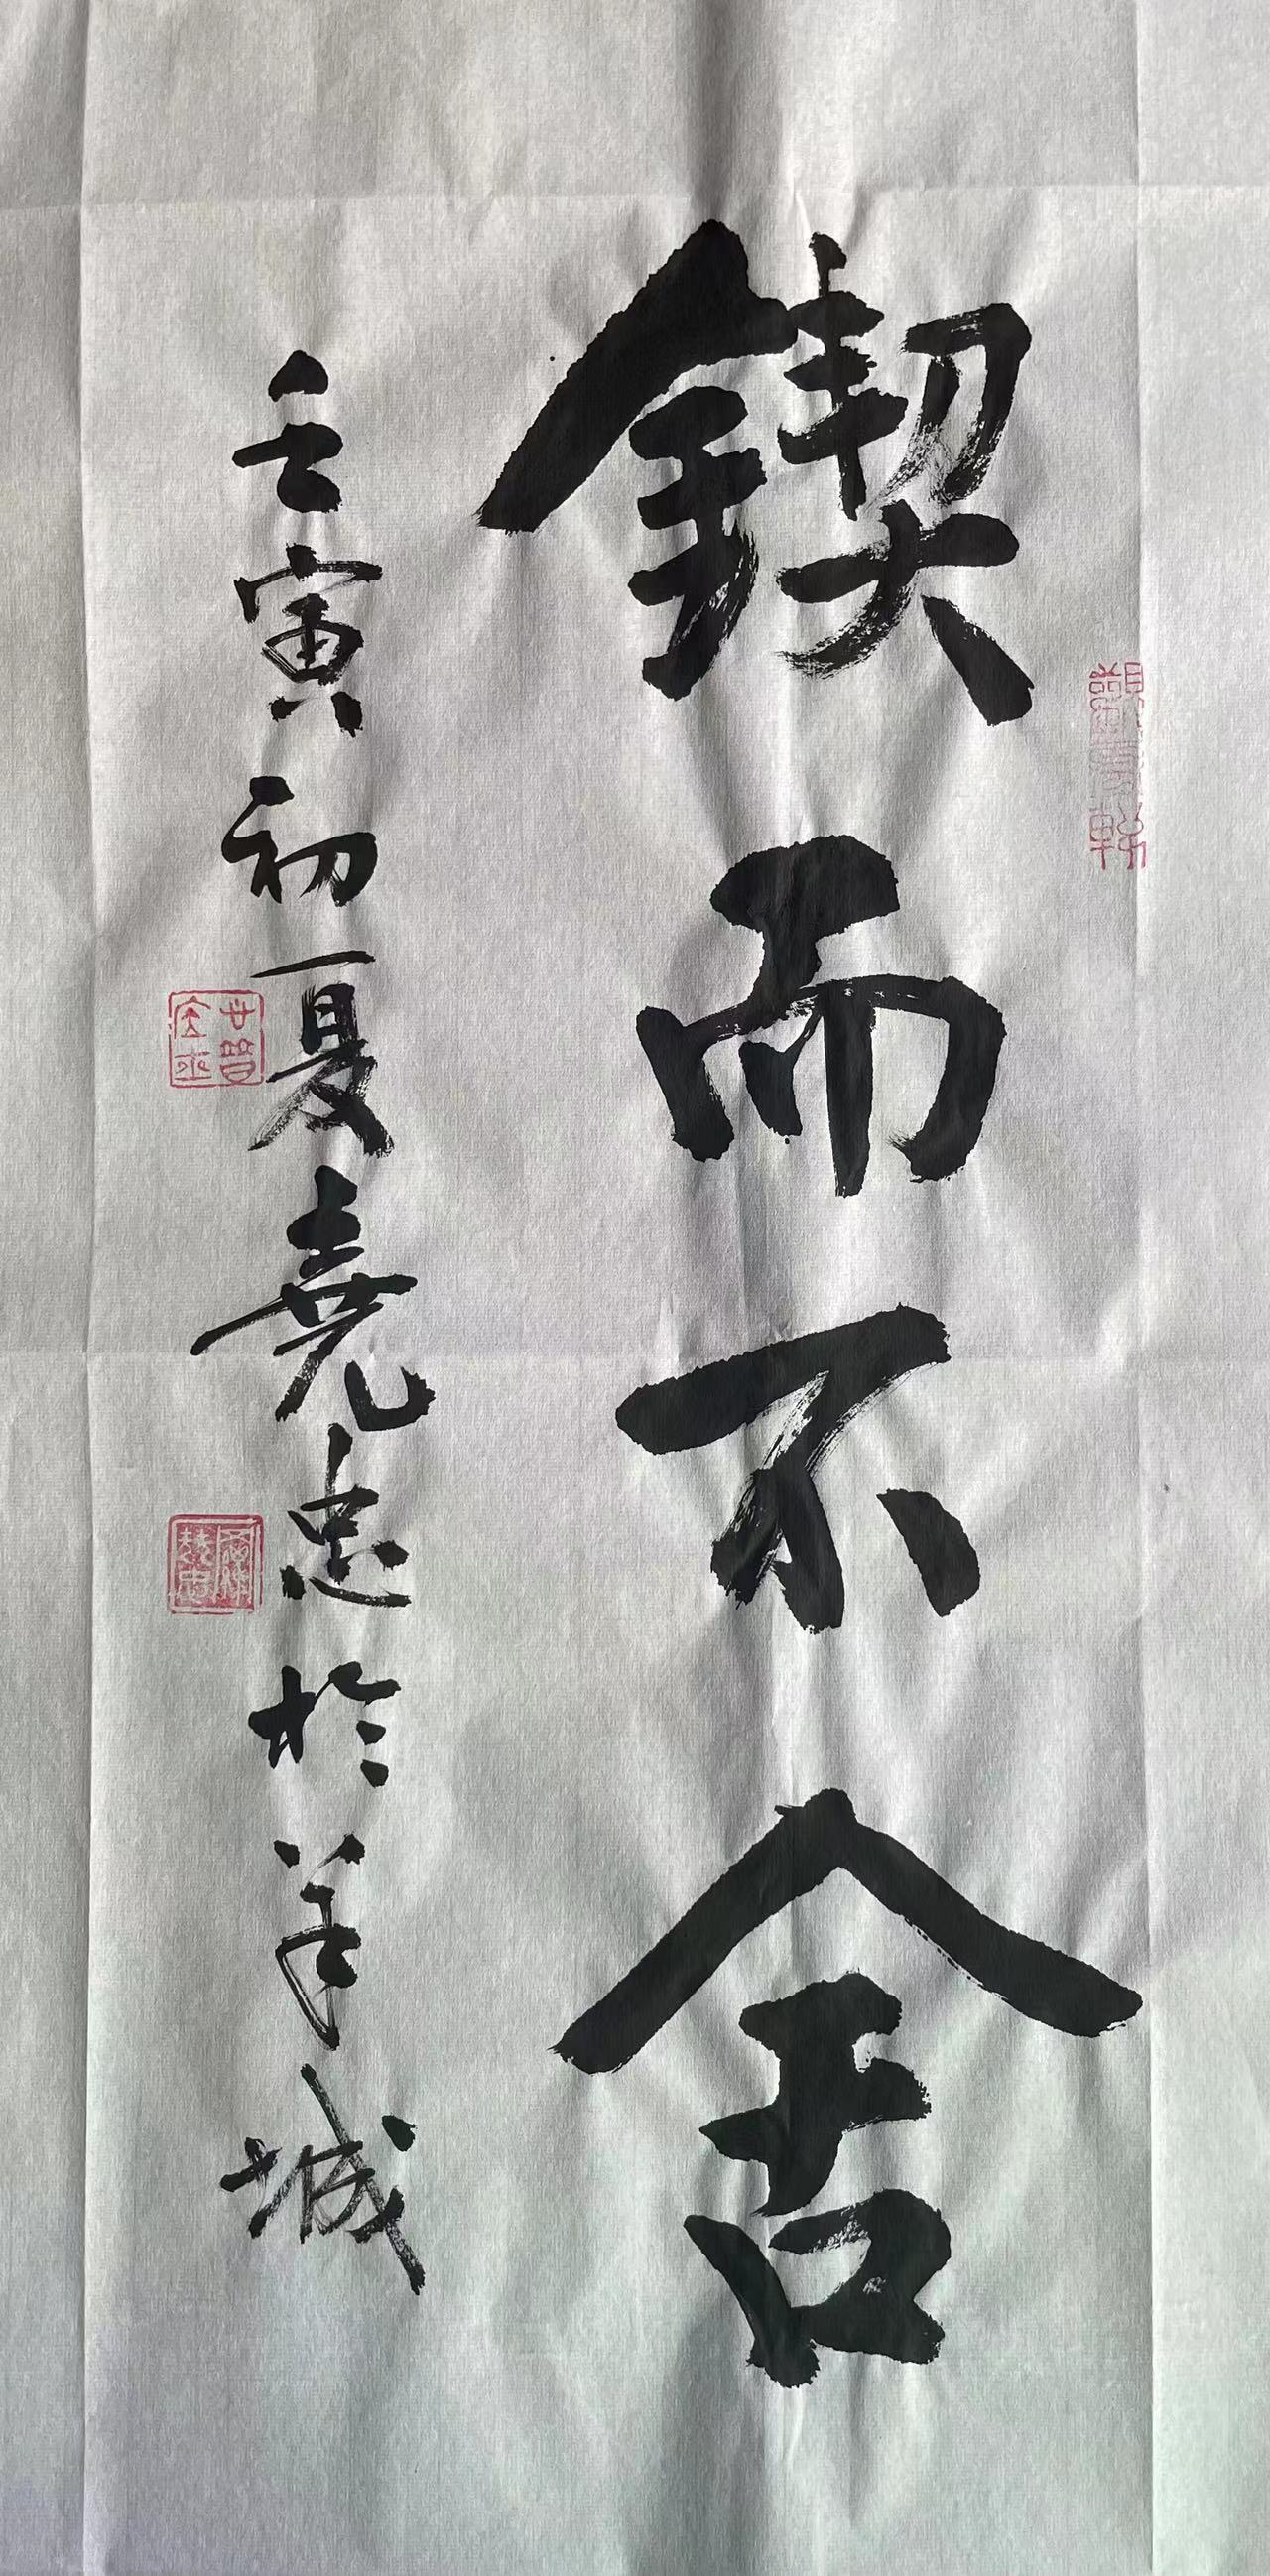 鍥而不舍
壬寅初夏堯忠於羊城